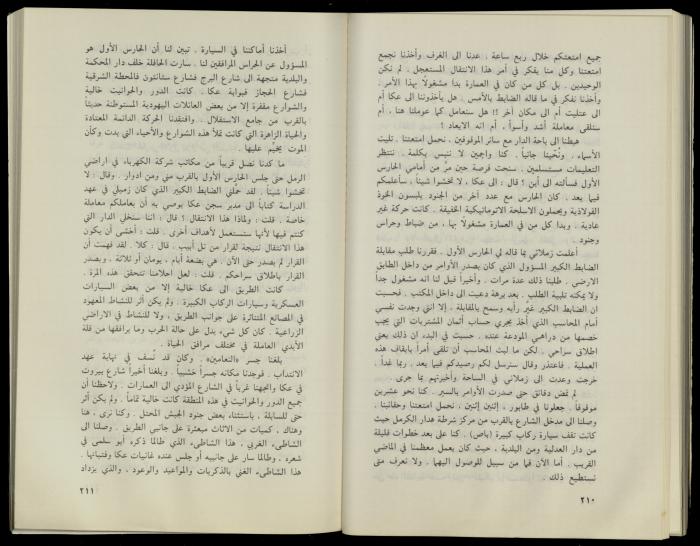 جميع امتعتكم خلال ربع ساعة ، عدنا الى الغرف وأخذنا نجمع
امتعتنا وكل منا يفكر في أمر هذا الانتقال المستعجل . لم نكن
الوحيدين . بل كل من كان في العمارة بدا مشغولاً بهذا الأمر .
وأخذنا نفكر في ما قاله الضابط بالأمس . هل يأخذوننا الى عكا أم
الى عتليت أم الى مكان آخر !! هل سنعامل كما عوملنا هنا ، أم
سنلقى معاملة أشد وأسوأ ، أم انه الابعاد !
هبطنا الى باحة الدار مع سائر الموقوفين . نحمل امتعتنا . تليت
الأسماء . ونُحينا جانباً . كنا واجمين لا ننبس بكلمة . ننتظر
التعليمات مستسلمين . سنحت فرصة حين مرّ من أمامي الحارس
الأول فسألته الى أين ؟ قال : الى عكا ، لا تخشوا شيئاً ، سأعلمكم
فيما بعد . كان الحارس مع عدد آخر من الجنود يلبسون الخوذ
الفولاذية ويحملون الاسلحة الاتوماتيكية الخفيفة . كانت حركة غير
عادية . وبدا كل من في العمارة مشغولاً بها ، من ضباط وحراس
وجنود .
أعلمت زملائي بما قاله لي الحارس الأول . فقررنا طلب مقابلة
الضابط الكبير المسؤول الذي كان يصدر الأوامر من داخل الطابق
الارضي . طلبنا ذلك عدة مرات . وأخيراً قيل لنا انه مشغول جداً
ولا يمكنه تلبية الطلب . بعد برهة دعيت الى داخل المكتب . فحسبت
ان الضابط الكبير غير رأيه وسمح بالمقابلة ، إلا انني وجدت نفسي
أمام المحاسب الذي أخذ يجري حساب أثمان المشتريات التي يجب
خصمها من دراهمي المودعة عنده . حسبت في البدء ان ذلك يعني
اطلاق سراحي . لكن ما لبث المحاسب أن تلقى أمراً بايقاف هذه
العملية . فاعتذر وقال سنرسل لكم رصيدكم فيما بعد . ربما غداً .
خرجت وعدت الى زملائي في الساحة وأخبرتهم بما جرى .
لم تمض دقائق حتى صدرت الأوامر بالسير . كنا نحو عشرين
موقوفاً . جعلونا في طابور ، إثنين إثنين ، نحمل امتعتنا وحقائبنا .
وصلنا الى مدخل الشارع بالقرب من مركز شرطة هدار الكرمل حيث
كانت تقف سيارة ركاب كبيرة (باص) . كنا على بعد خطوات قليلة
من دار العدلية ومن البلدية ، حيث كان يعمل معظمنا في الماضي
القريب . أما الآن فما من سبيل للوصول اليهما . ولا نعرف متى
نستطيع ذلك .
٢١٠
أخذنا أماكننا في السيارة . تبين لنا أن الحارس الأول هو
المسؤول عن الحراس المرافقين لنا . سارت الحافلة خلف دار المحكمة
والبلدية متجهة الى شارع البرج فشارع ستانتون فالمحطة الشرقية
فشارع الحجاز فبوابة عكا . كانت الدور والحوانيت خالية
والشوارع مقفرة إلا من بعض العائلات اليهودية المستوطنة حديثاً
بالقرب من جامع الاستقلال . وافتقدنا الحركة الدائمة المعتادة
والحياة الزاهرة التي كانت تملأ هذه الشوارع والأحياء التي بدت وكأن
الموت يخيّم عليها .
ما كدنا نصل قريباً من مكاتب شركة الكهرباء في اراضي
الرمل حتى جلس الحارس الأول بالقرب مني ومن ادوار . وقال : لا
تخشوا شيئاً . لقد حملني الضابط الكبير الذي كان زميلي في عهد
الدراسة كتاباً الى مدير سجن عكا يوصي به أن يعاملكم معاملة
خاصة . قلت : ولماذا هذا الانتقال ؟ قال : اننا سنخلي الدار التي
كنتم فيها لأنها ستستعمل لأهداف أخرى . قلت : أخشى أن يكون
هذا الانتقال نتيجة لقرار من تل أبيب . قال : كلا . لقد فهمت أن
القرار لم يصدر حتى الآن . هي بضعة أيام ، يومان أو ثلاثة . ويصدر
القرار باطلاق سراحكم . قلت : لعل احلامنا تتحقق هذه المرة .
كانت الطريق الى عكا خالية إلا من بعض السيارات
العسكرية وسيارات الركاب الكبيرة . ولم يكن أثر للنشاط المعهود
في المصانع المتناثرة على جوانب الطريق ، ولا للنشاط في الاراضي
الزراعية . كان كل شيء يدل على حالة الحرب وما يرافقها من قلة
الأيدي العاملة في مختلف مرافق الحياة .
بلغنا جسر «النعامين» . وكان قد نُسف في نهاية عهد
الانتداب . فوجدنا مكانه جسراً خشبياً . وبلغنا أخيراً شارع بيروت
في عكا واتجهنا غرباً في الشارع المؤدي الى العمارات . ولاحظنا أن
جميع الدور والحوانيت في هذه المنطقة كانت خالية تماماً . ولم يكن أثر
حتى للسابلة ، باستثناء بعض جنود الجيش المحتل . وكنا نرى ، هنا
وهناك ، كميات من الاثاث مبعثرة على جانبي الطريق . وصلنا الى
الشاطىء الغربي ، هذا الشاطىء الذي طالما ذكره أبو سلمى في
شعره ، وطالما سار على جانبيه أو جلس عنده غانيات عكا وفتيانها .
هذا الشاطىء الغني بالذكريات والمواعيد والوعود ، والذي يزداد
٢١١